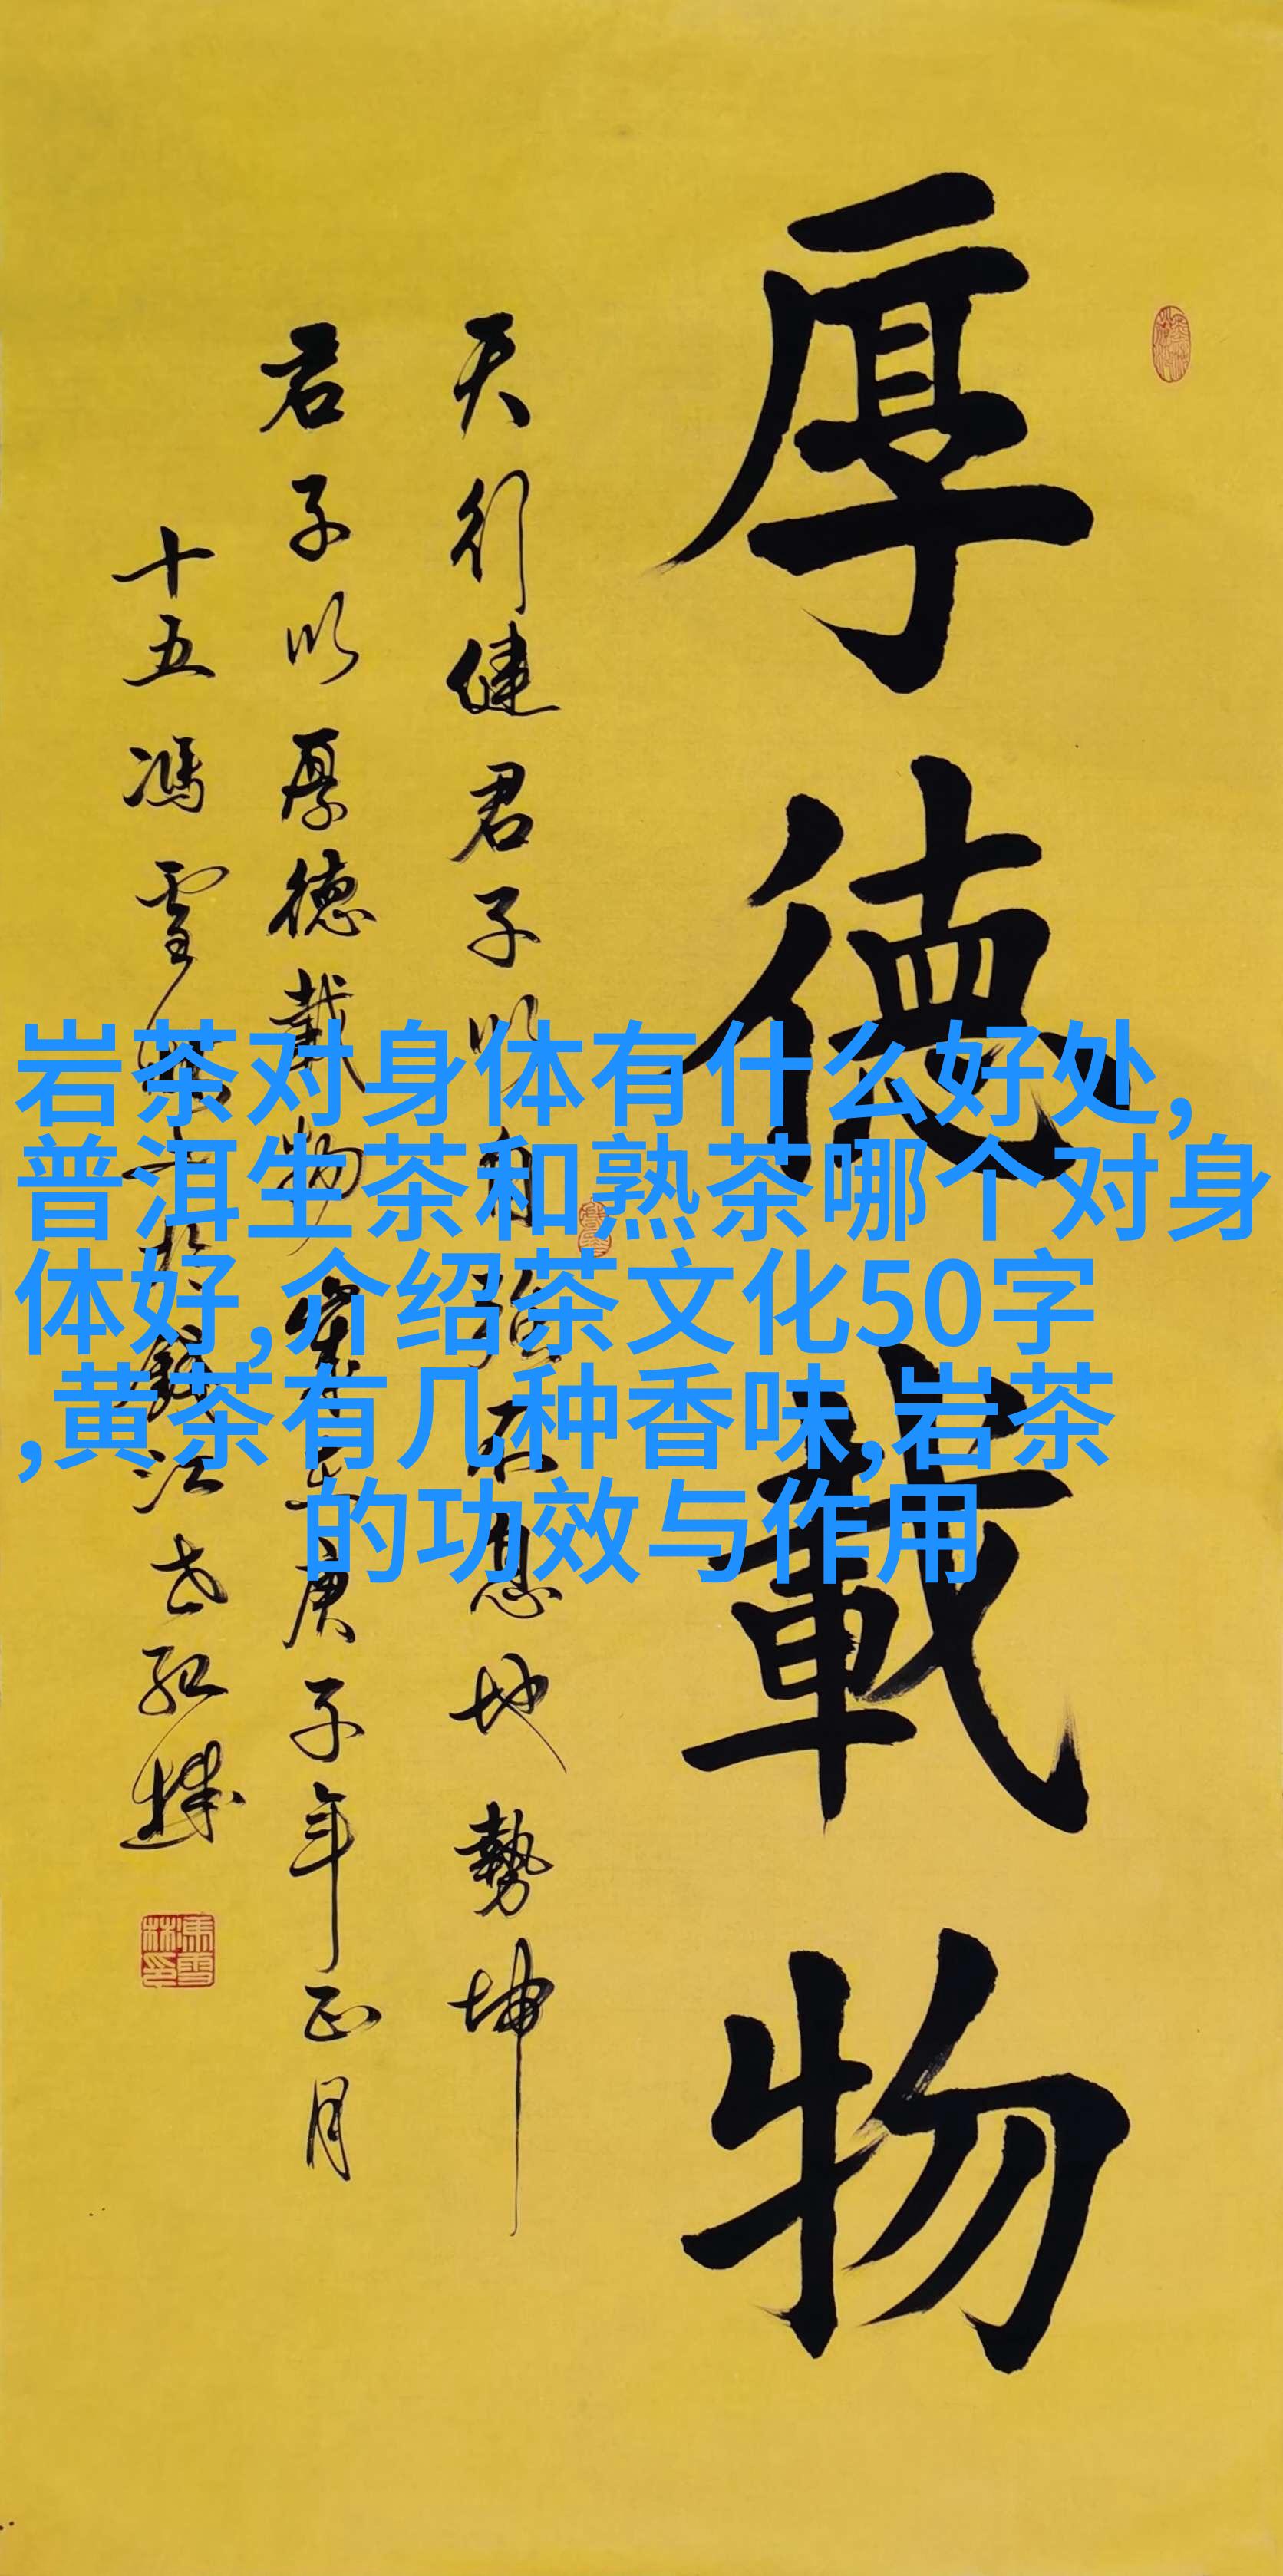 厚德載物
天行健君子以自強不息地勢坤
君子以厚德載物
庚子年正月
十五馮雪
岩茶对身体有什么好处,
普洱生茶和熟茶哪个对身
体好,介绍茶文化50字
,黄茶有几种香味,岩茶
的功效与作用